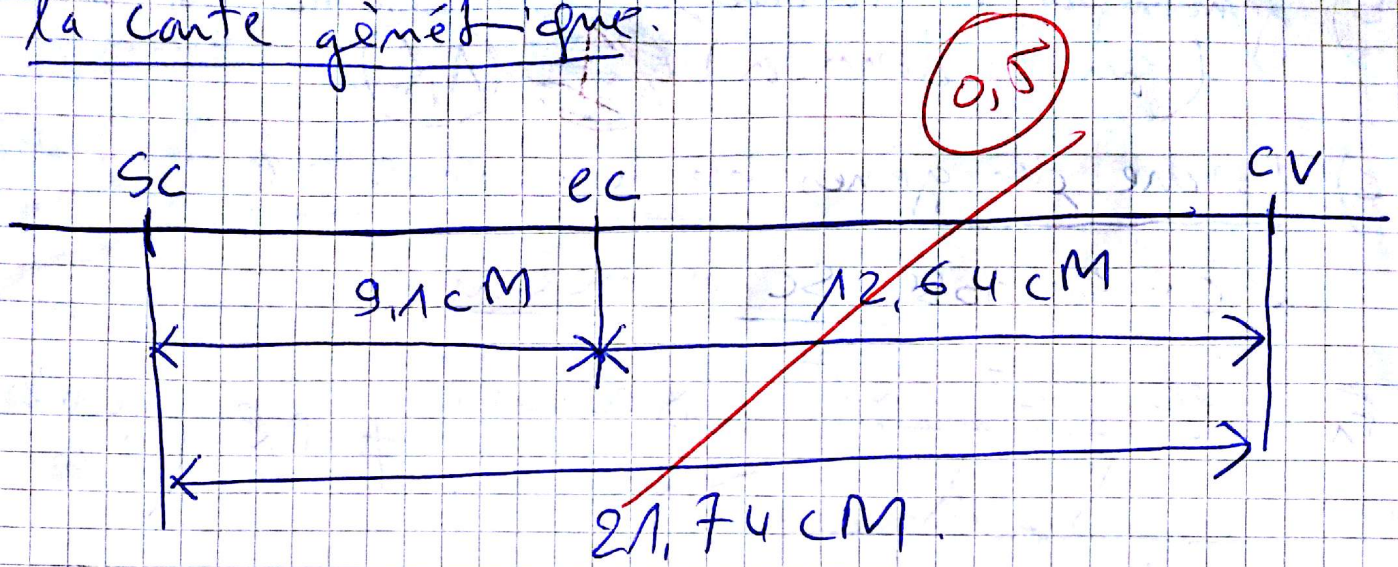 la carte génétique.
0,5
Sc ec cv
9,1 cM 12,64 cM
21,74 cM.